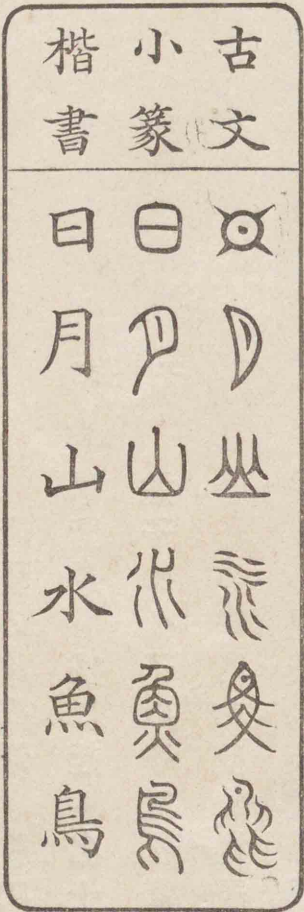 古文 小篆 楷書
日 日 日
月 月 月
山 山 山
水 水 水
魚 魚 魚
鳥 鳥 鳥